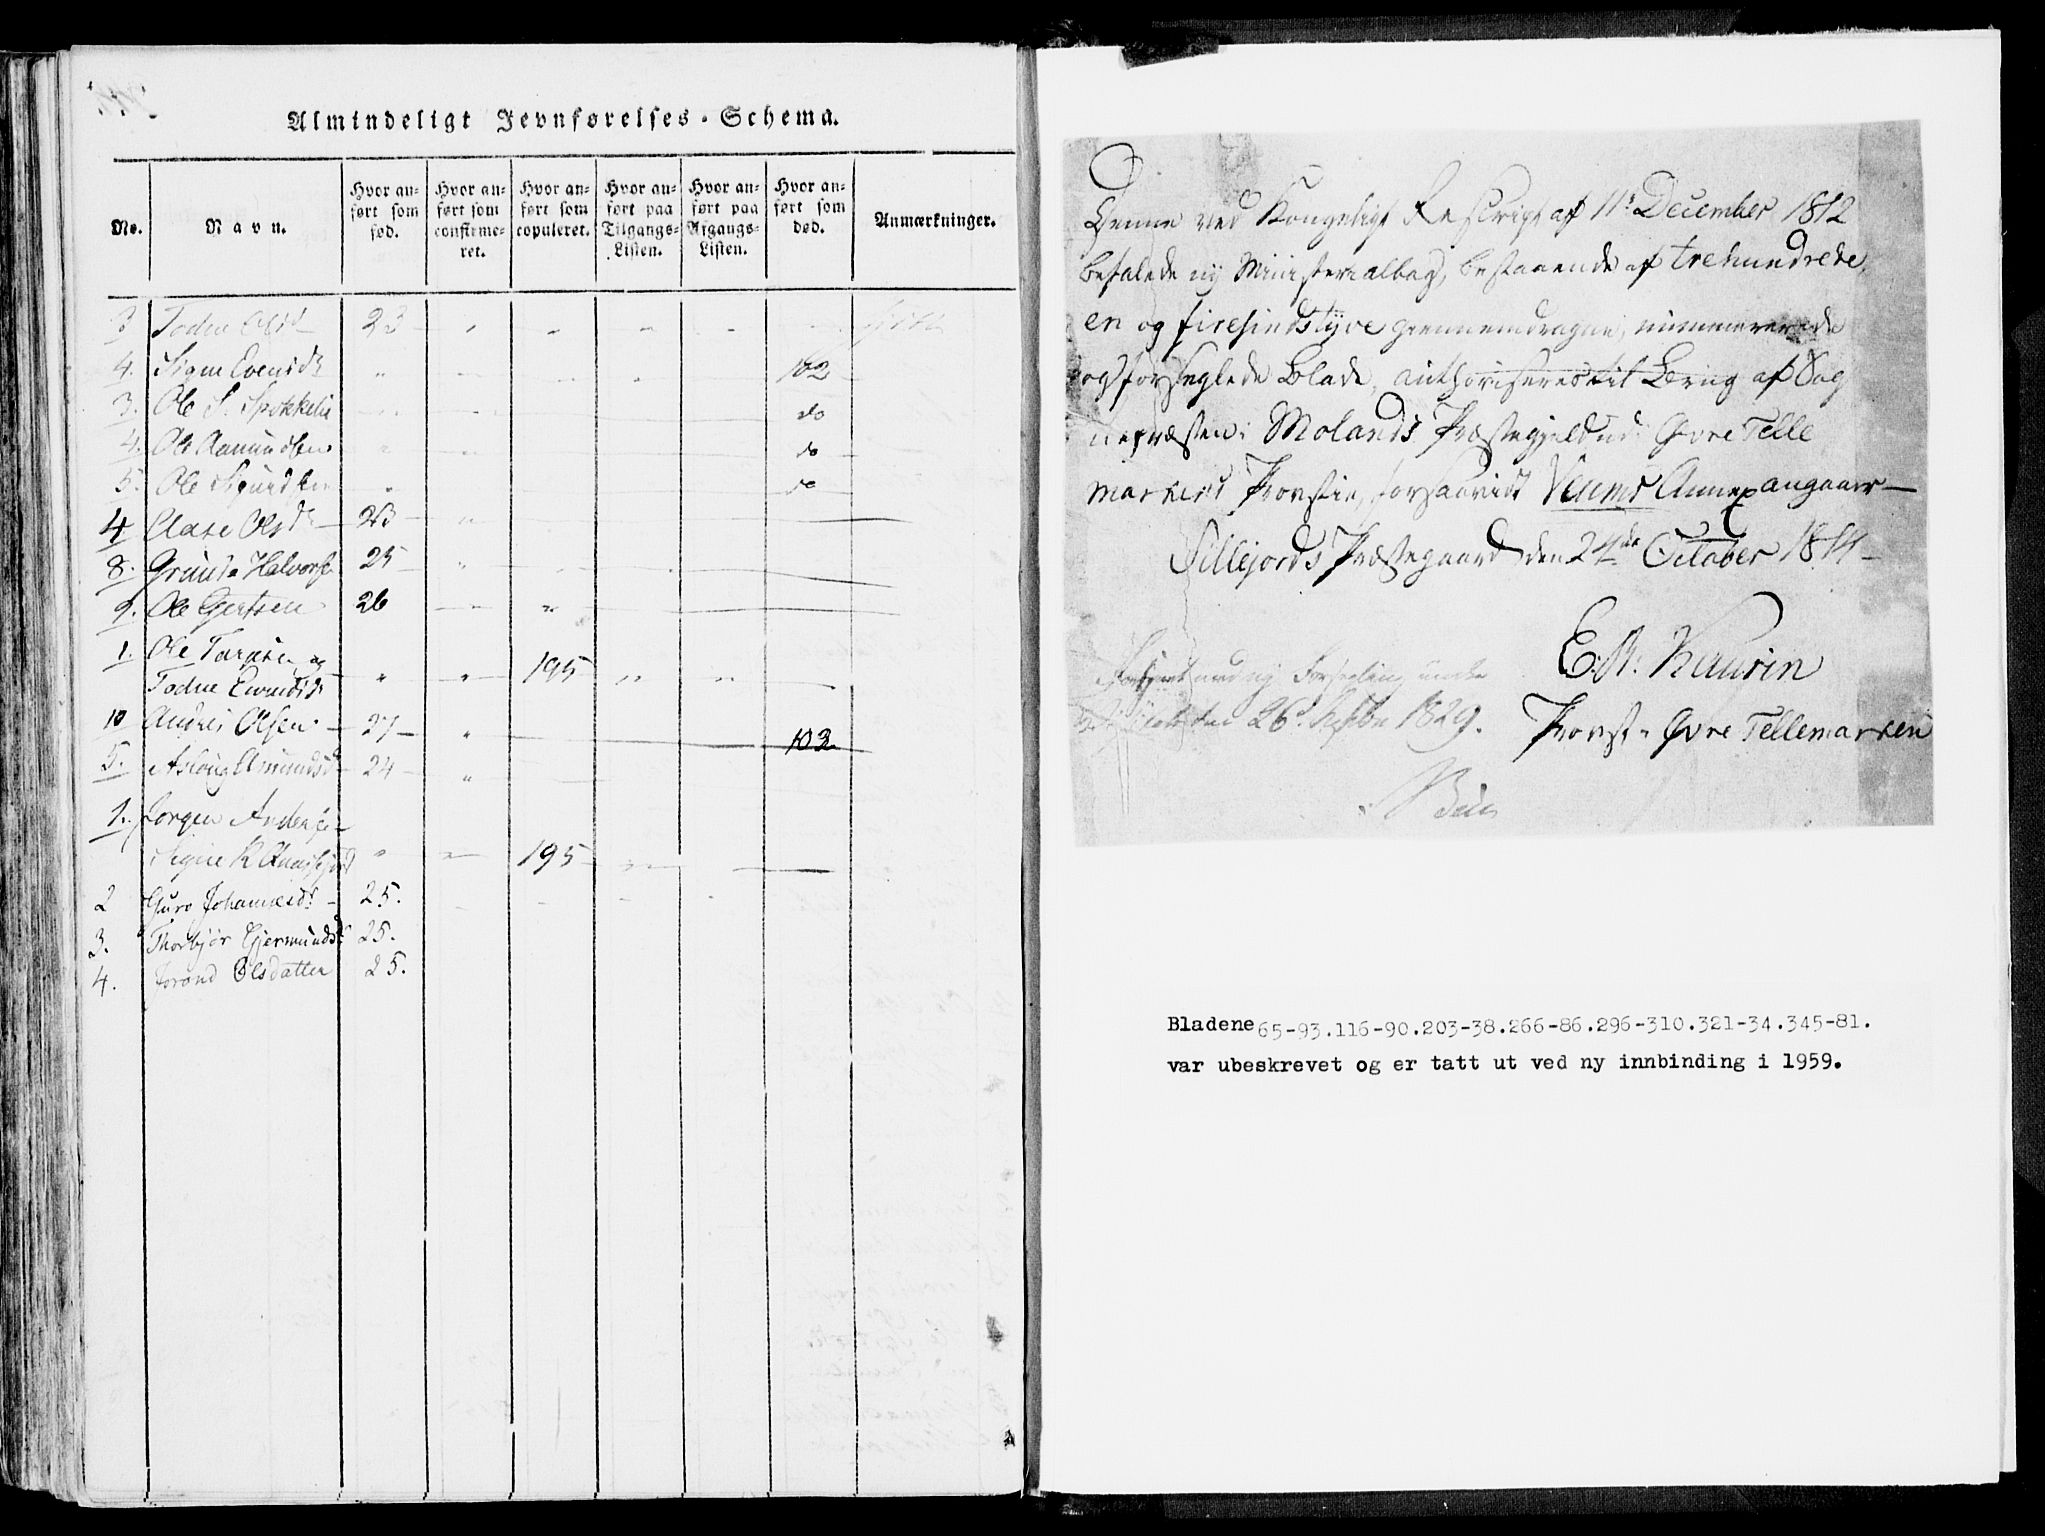 Almindeligt Jevnførelses-Schema.
No. Navn. Hvor anført som fød. Hvor anført som confirmeret. Hvor anført som copuleret. Hvor anført paa Tilgangs-Listen. Hvor anført paa Afgangs-Listen. Hvor anført som død. Anmærkninger.
3 Todne Olsd 23
4. Signe 102
3. Ole S. do
4. Ole Aamundsen do
5. Ole Sigurdsen do
4 Olsdr 23
8. Halvors 25
9. Ole Gjertsen 26
1. Ole og
Todne 195
10 Andres Olsen 27 103
5. Aslaug Amundsd 24
1. Jørgen
Signe 195
2 Guro Johannesdr 25.
3. Thorbjør Gjermundsdr 25.
4. Jorand Olsdatter 25.
Denne ved Kongeligt Rescript af 11te December 1812
befalede ny Ministerialbog, bestaaende af trehundrede,
en og firesindstyve giennemdragne, nummererede
og forseglede Blade, authoriseres til Brug af Sog
nepræsten i Molands Præstegjeld ud i Øvre Telle
markens Provstie, forsaavidt Annex angaaer—
Sillejords Præstegaard den 24de October 1814—
E. M. Kaurin
Provst i Øvre Tellemarken
Forsynet med ny Forsegling
26d 1829.
Bladene 65-93.116-90.203-38.266-86.296-310.321-34.345-81.
var ubeskrevet og er tatt ut ved ny innbinding i 1959.